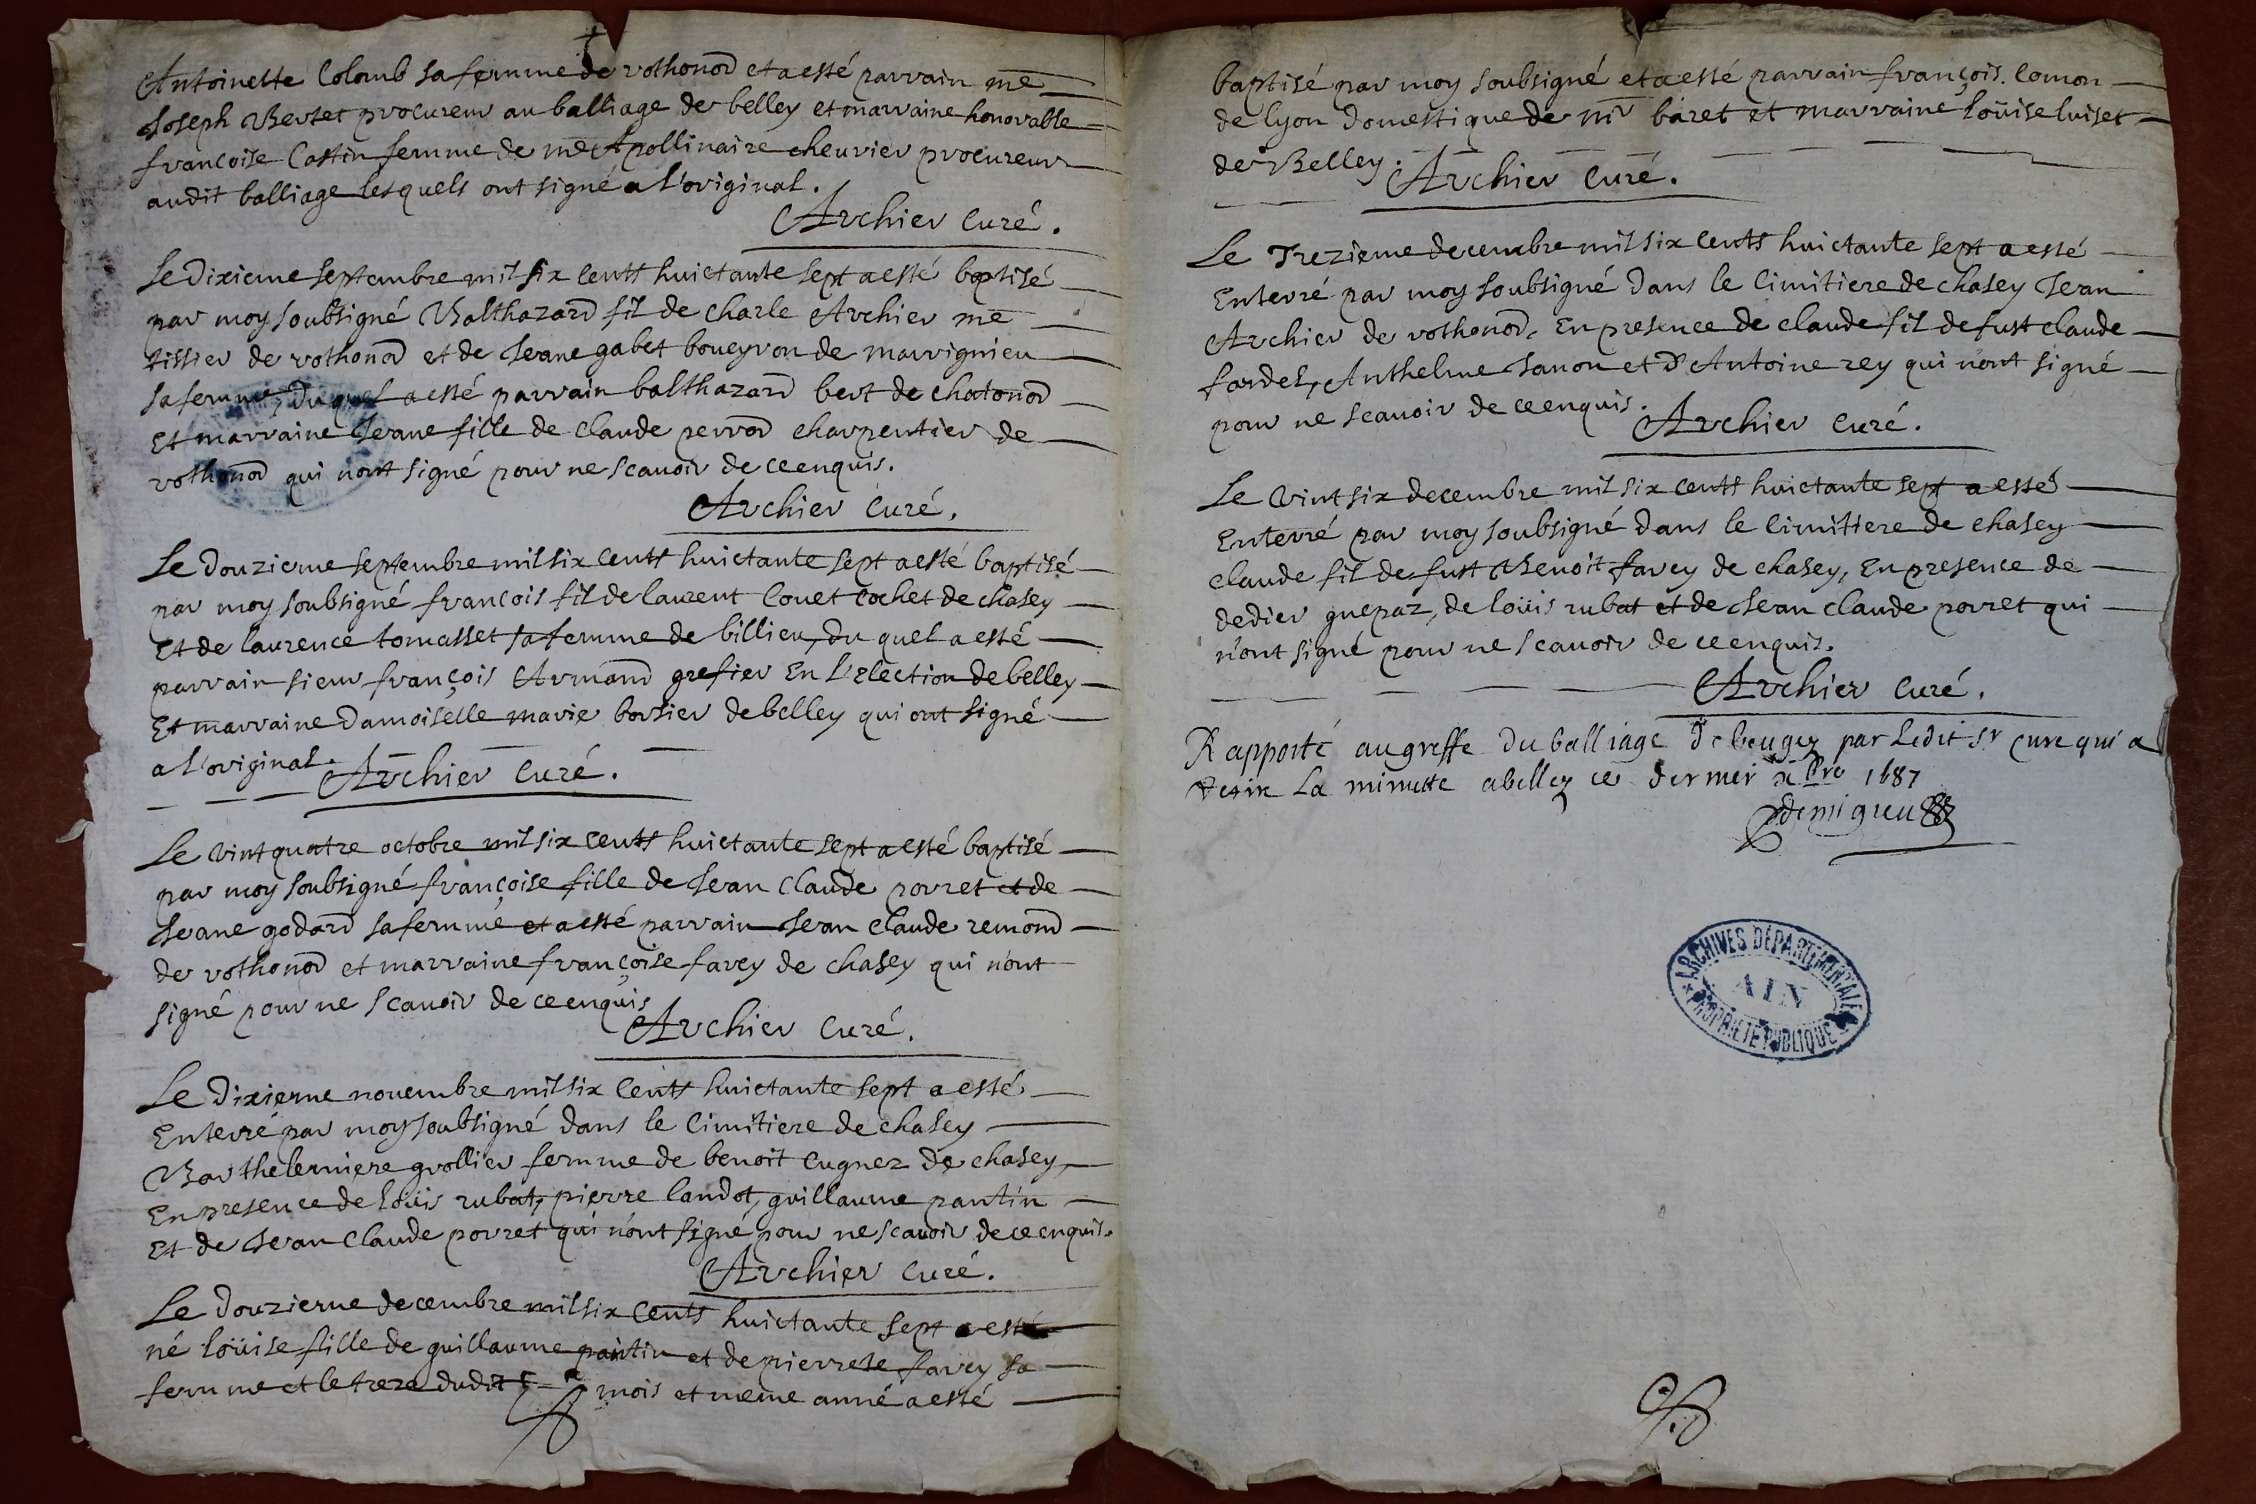 Antoinette Colomb sa femme de rothonod et a esté parrain me
Joseph Bertet procureur au balliage de belley et marraine honorable
francoise Costin femme de me Apollinaire cheurier procureur
audit balliage lesquels ont signé a l'original.
Archier curé.
Le dixieme septembre mil six cents huictante sept a esté baptisé
par moy soubsigné Balthazard fil de charle Archier me
tissier de rothonod et de Jeane gabet boueyron de marrignieu
sa femme, du quel a esté parrain balthazard bert de chatonod
Et marraine Jeane fille de claude perrod charpentier de
rothonod qui n'ont signé pour ne scauoir de ce enquis.
Archier curé.
Le douzieme septembre mil six cents huictante sept a esté baptisé
par moy soubsigné francois fil de laurent Couet cochet de chasey
Et de laurence tomasset sa femme de billieu, du quel a esté
parrain sieur françois Armand grefier En L'election de belley
Et marraine Damoiselle marie borsier de belley qui ont signé
a l'original.
Archier curé.
Le vint quatre octobre mil six cents huictante sept a esté baptisé
par moy soubsigné françoise fille de Jean claude porret et de
Jeane godard sa femme et a esté parrain Jean claude remond
de rothonod et marraine françoise farey de chasey qui n'ont
signé pour ne scauoir de ce enquis
Archier curé.
Le dixieme nouembre mil six cents huictante sept a esté
Enterré par moy soubsigné dans le cimitiere de chasey
Barthelemiere grollier femme de benoit cugnez de chasey,
En presence de loüis rubat, pierre landot, guillaume pantin
Et de Jean Claude porret qui n'ont signé pour ne scauoir de ce enquis.
Archier curé.
Le douzieme decembre mil six cents huictante sept a esté
né loüise fille de guillaume pantin et de pierrete farey sa
femme et le treze dudit mois et meme anné a esté
baptisé par moy soubsigné et a esté parrain françois. comon
de lyon domestique de mr baret et marraine loüise luiset
de Belley.
Archier curé.
Le Trezieme decembre mil six cents huictante sept a esté
Enterré par moy soubsigné dans le cimitiere de chasey Jean
Archier de rothonod, En presence de claude fil de fust claude
fardel, Anthelme Janon et d'Antoine rey qui n'ont signé
pour ne scauoir de ce enquis.
Archier curé.
Le vint six decembre mil six cents huictante sept a esté
Enterré par moy soubsigné dans le cimitiere de chasey
claude fil de fust Benoit farey de chasey, En presence de
dedier guepaz, de loüis rubat et de Jean claude porret qui
n'ont signé pour ne scauoir de ce enquis.
Archier curé.
Rapporté au greffe du balliage de beugey par Ledit Sr curé qui a
Retiré La minutte a belley ce dernier xbre 1687
demigieu
ARCHIVES DÉPARTEMENTALES
AIN
PROPRIÉTÉ PUBLIQUE